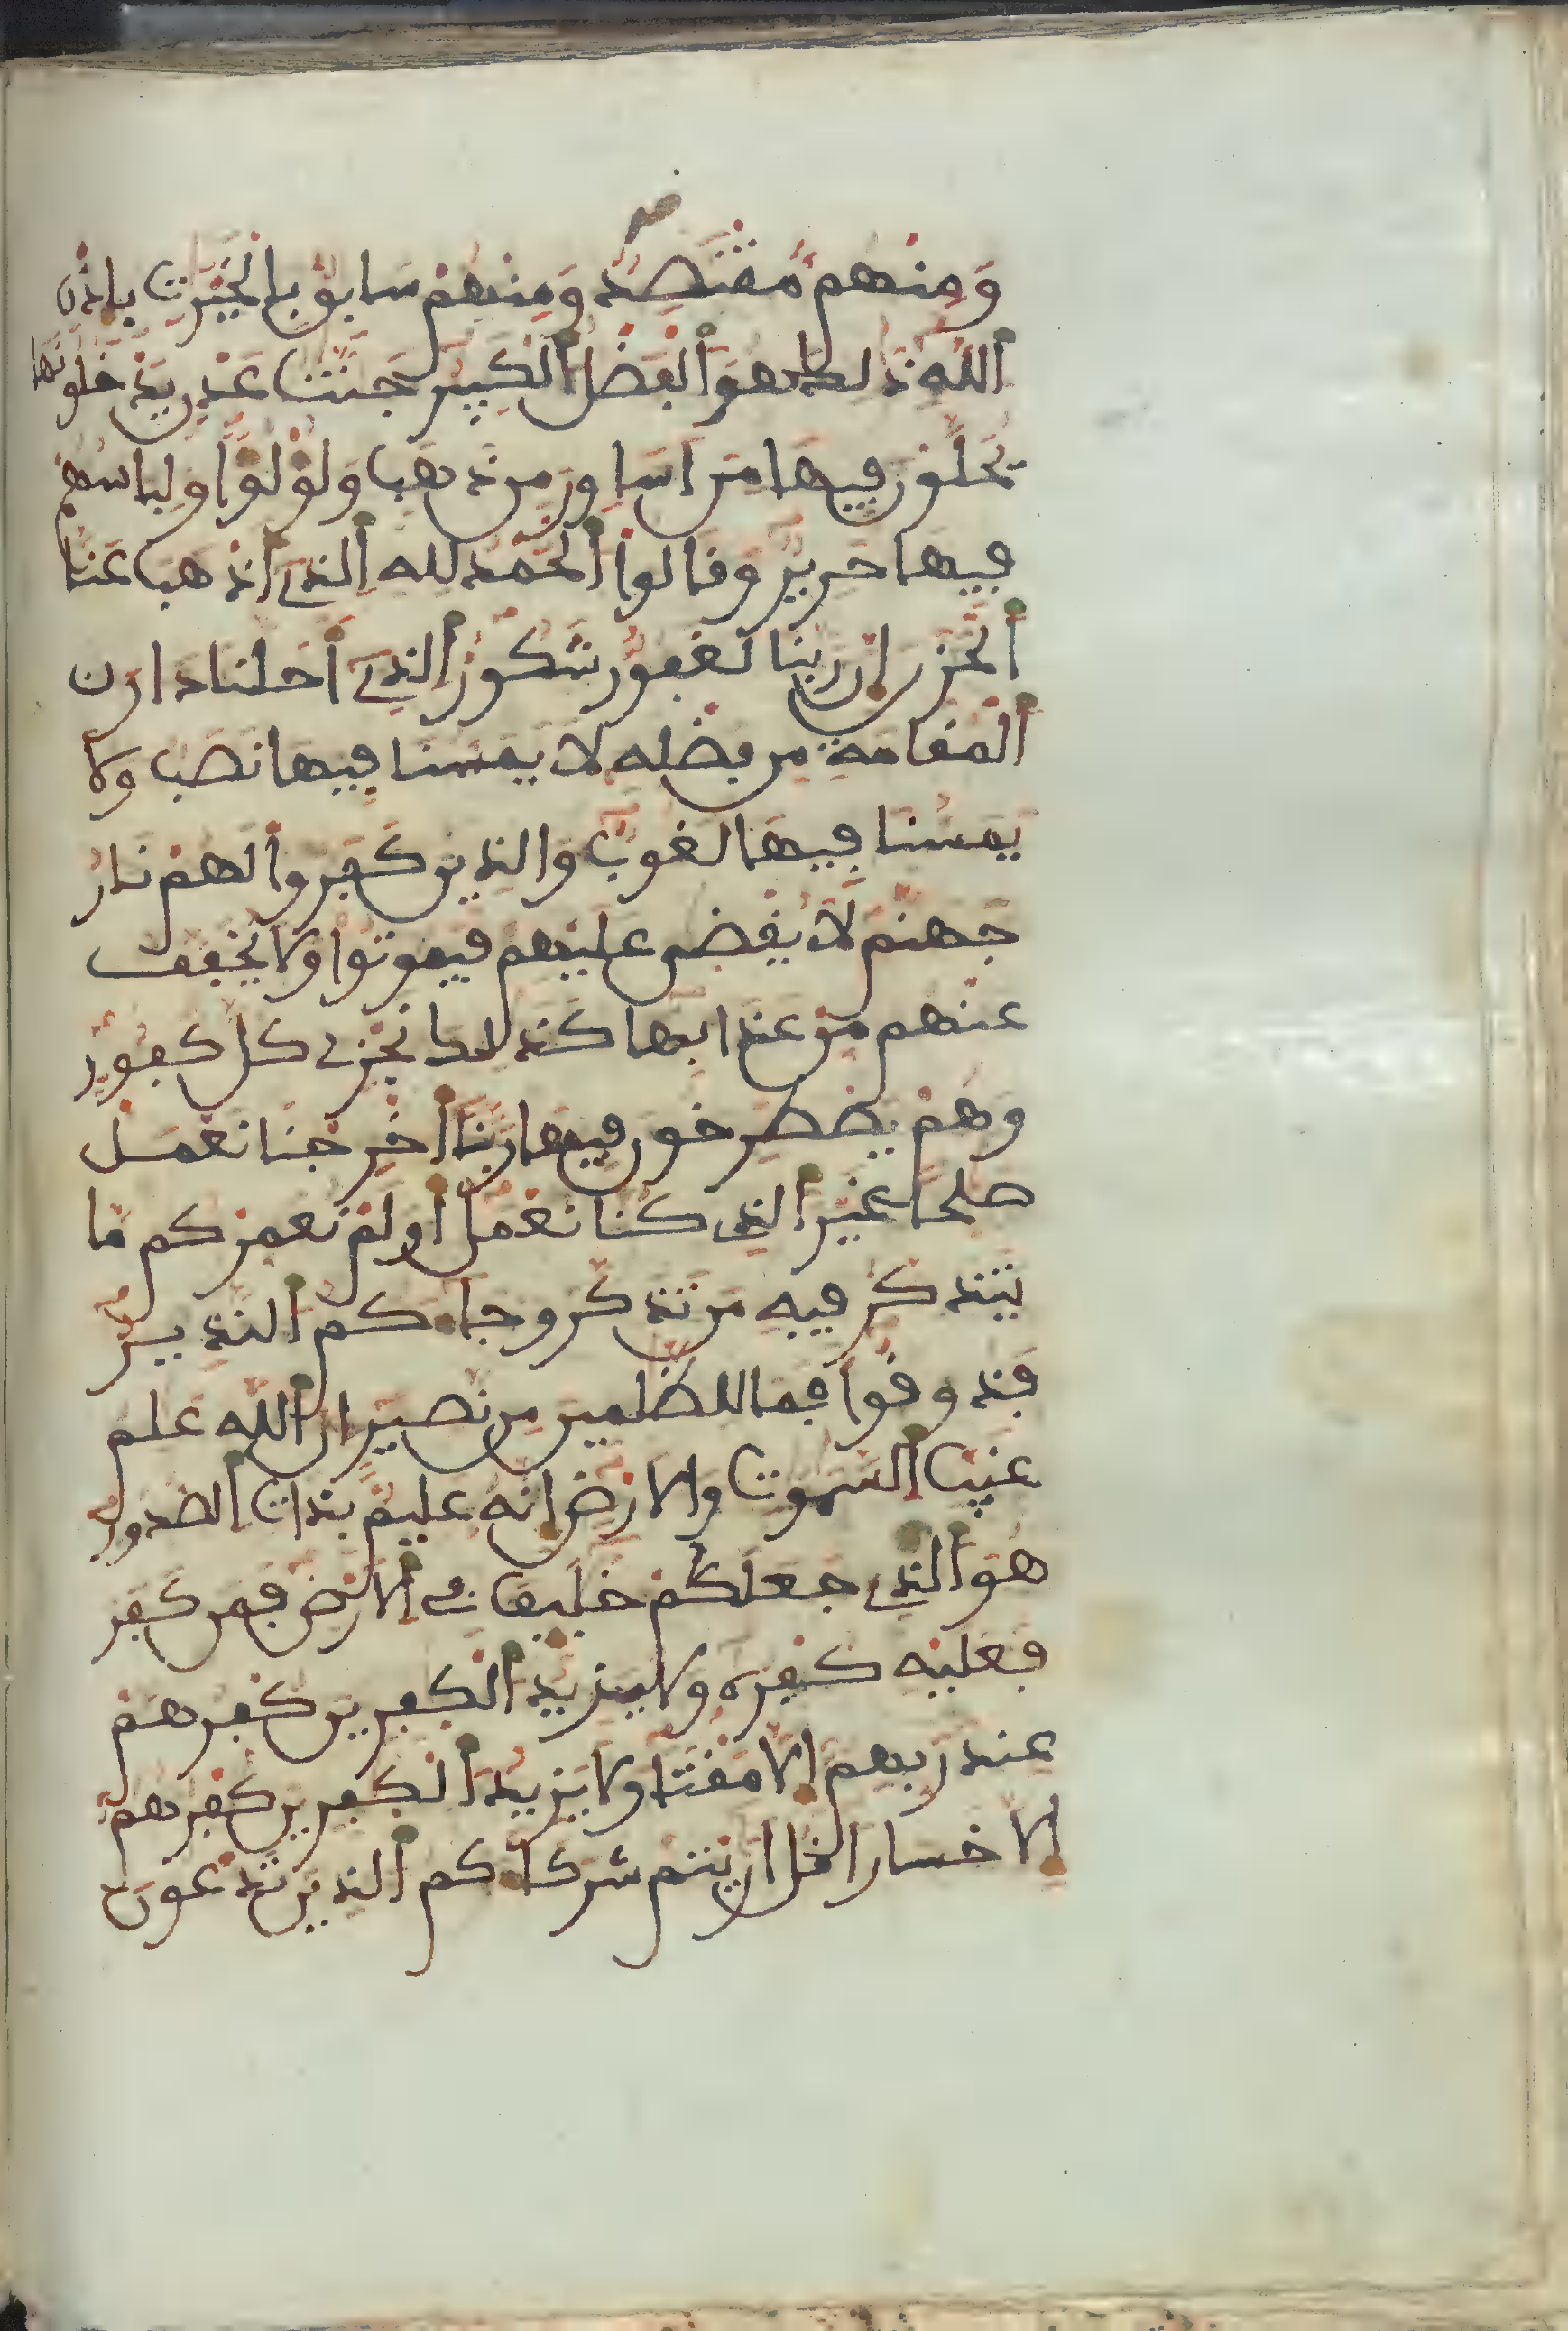 صر
وَمِنْهُم مُّقْتَصِدٌ وَمِنْهُمْ سَابِقٌ بِالْخَيْرَتِ بِإِذْنِ
اَللَّهِ ذَلِكَ هُوَ اَلْفَضْلُ اَلْكَبِيرُ جَنَّتُ عَدْنٍ يَدْخُلُونَهَا
يُحَلَّوْنَ فِيهَا مِنَ اسَاوِرَ مِن ذَهَبٍ وَلُؤْلُؤًا وَلِبَاسُهُمْ
فِيهَا حَرِيرٌ وَقَالُوا اَلْحَمْدُ لِلهِ اَلذِے أَذْهَبَ عَنَّا
اَلْحَزَنَ إِنَّ رَبَّنَا لَغَفُورٌ شَكُورٌ اَلذِے أَحَلَّنَا دَارَ
اَلْمُقَامَةِ مِن فَضْلِهِ لَا يَمَسُّنَا فِيهَا نَصَبٌ وَلَا
يَمَسُّنَا فِيهَا لُغُوبٌ وَالذِينَ كَفَرُوا لَهُمْ نَارُ
جَهَنَّمَ لَا يُقْضَى عَلَيْهِمْ فَيَمُوتُوا وَلَا يُخَفَّفُ
عَنْهُم مِّنْ عَذَابِهَا كَذَلِكَ نَجْزِے كُلَّ كَفُورٍ
وَهُمْ يَصْطَرِخُونَ فِيهَا رَبَّنَا أَخْرِجْنَا نَعْمَلْ
صَلِحًا غَيْرَ اَلذِے كُنَّا نَعْمَلُ أَوَلَمْ نُعَمِّرْكُم مَّا
يَتَذَكَّرُ فِيهِ مَن تَذَكَّرَ وَجَاءَكُمُ اَلنَّذِيرُ
فَذُوقُوا فَمَا لِلظَّلِمِينَ مِن نَّصِيرٍ إِنَّ اَللَّهَ عَلِمُ
غَيْبِ اَلسَّمَوَتِ وَالَارْضِ إِنَّهُ عَلِيمٌ بِذَاتِ اَلصُّدُورِ
هُوَ اَلذِے جَعَلَكُمْ خَلَيِفَ فِے اِلَارْضِ فَمَن كَفَرَ
فَعَلَيْهِ كُفْرُهُ وَلَا يَزِيدُ اَلْكَفِرِينَ كُفْرُهُمْ
عِندَ رَبِّهِمُ إِلَّا مَقْتًا وَلَا يَزِيدُ اَلْكَفِرِينَ كُفْرُهُمُ
إِلَّا خَسَارًا قُلَ ارَيْتُمْ شُرَكَاءَكُمُ اَلذِينَ تَدْعُونَ